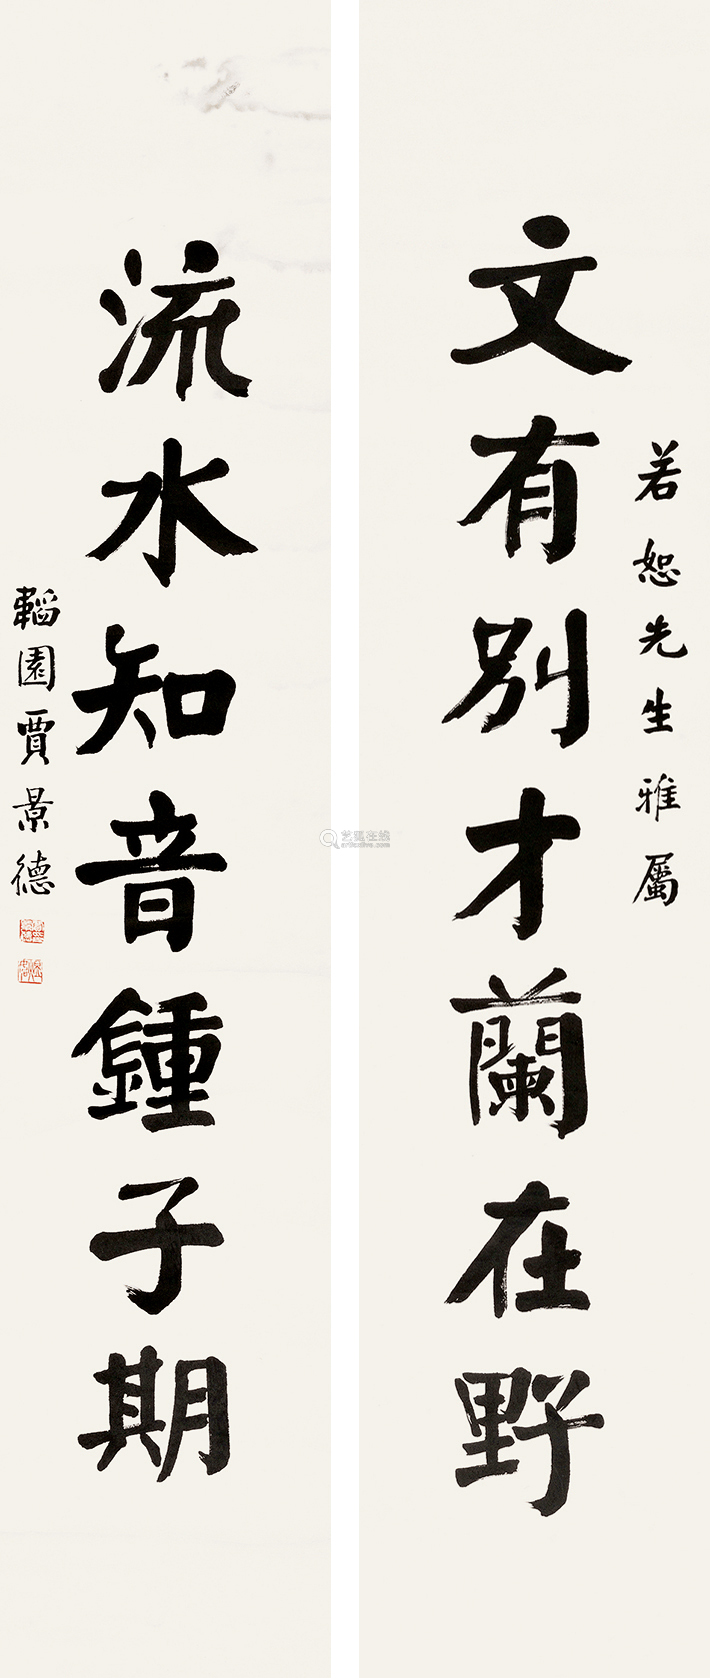 若恕先生雅屬
文有別才蘭在野
流水知音鍾子期
韜園賈景德
艺图在线